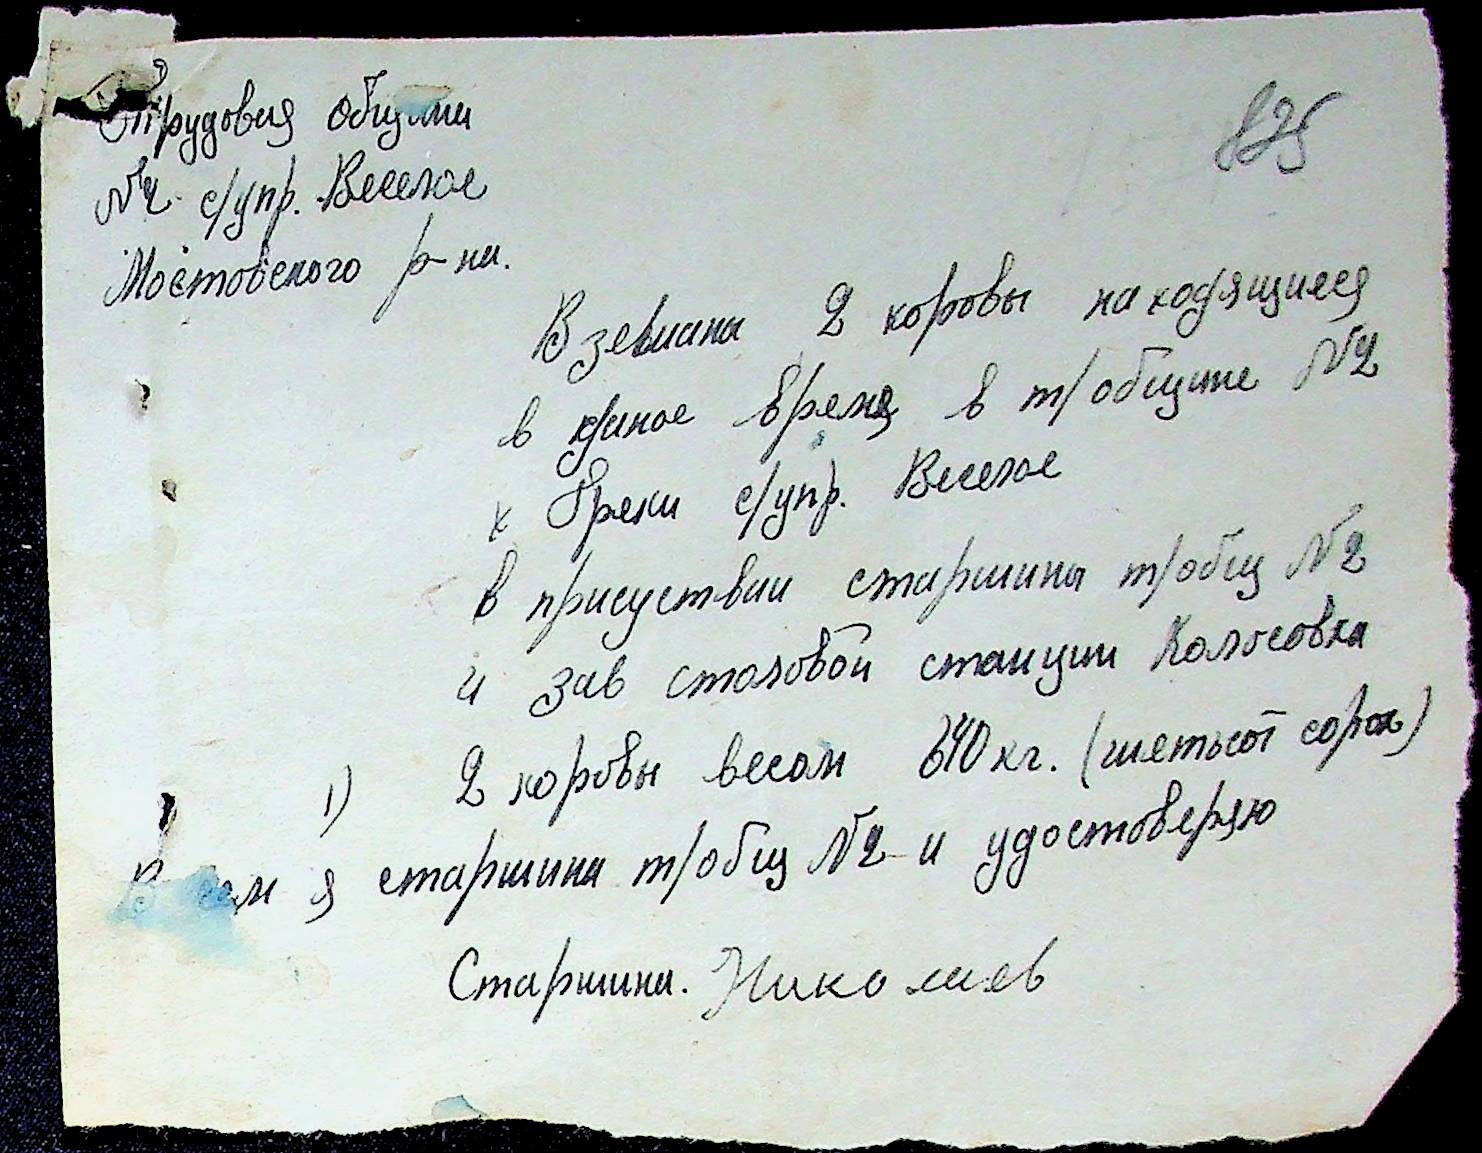 Трудовая общины
№2 с/упр. Веселое
Мостовского р-на.
825
Взевшана 2 коровы находящиеся
в даное время в т/общине №2
х Греки с/упр. Веселое
в присуствии старшины т/общ №2
и зав столовой станции Колосовка
1) 2 коровы весом 640 кг. (шетьсот сорок)
В чем я старшина т/общ №2 и удостоверяю
Старшина. Николаев